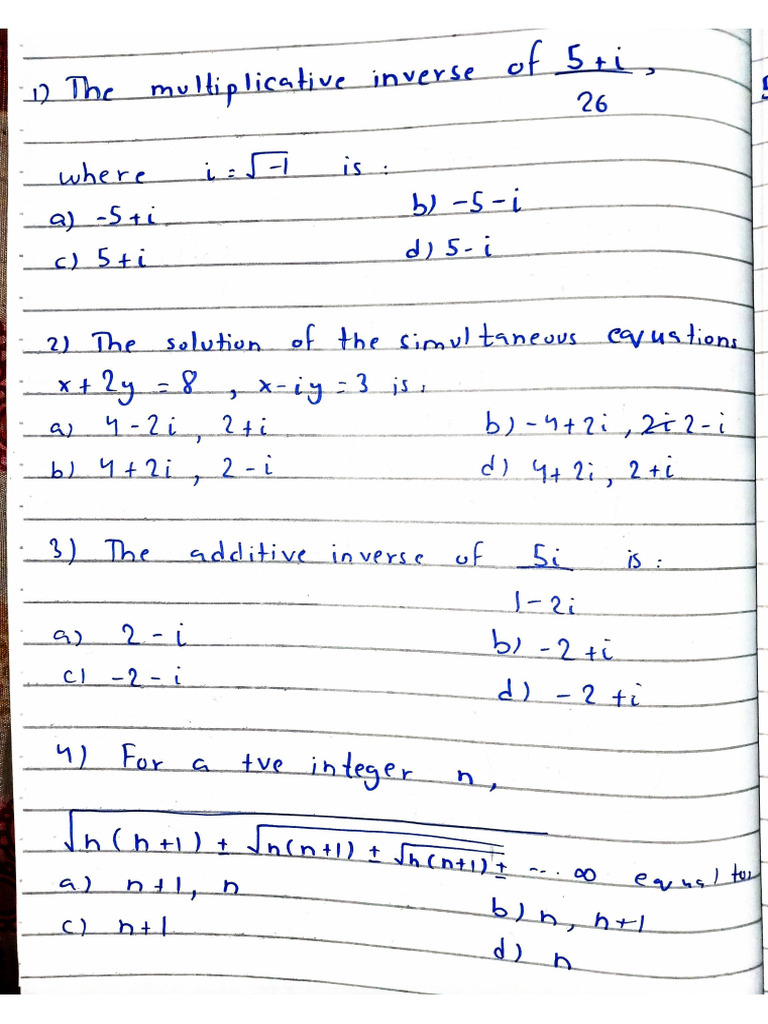 1) The multiplicative inverse of 5+i,
26
where i=√-1 is:
a) -5+i b) -5-i
c) 5+i d) 5-i
2) The solution of the simultaneous equations
x+2y=8, x-iy=3 is:
a) 4-2i, 2+i b) -4+2i, 2-i
b) 4+2i, 2-i d) 4+2i, 2+i
3) The additive inverse of 5i is:
1-2i
a) 2-i b) -2+i
c) -2-i d) -2+i
4) For a +ve integer n,
√n(n+1) ± √n(n+1) ± √n(n+1) ± ... ∞ equal to:
a) n+1, n b) n, n+1
c) n+1 d) n